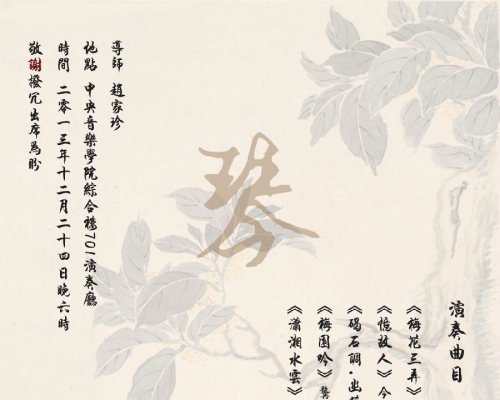 演奏曲目
《梅花三弄》
《憶故人》今
《碣石調·幽
《梅園吟》龔
《瀟湘水雲》
琴
導師 趙家珍
地點 中央音樂學院綜合樓701演奏廳
時間 二零一三年十二月二十四日晚六時
敬謝撥冗出席為盼